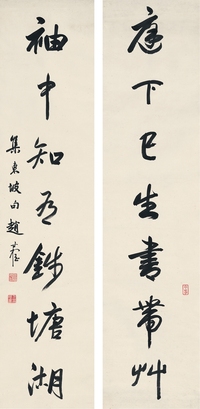 庭下已生書帶草
袖中知有錢塘湖
集東坡句趙